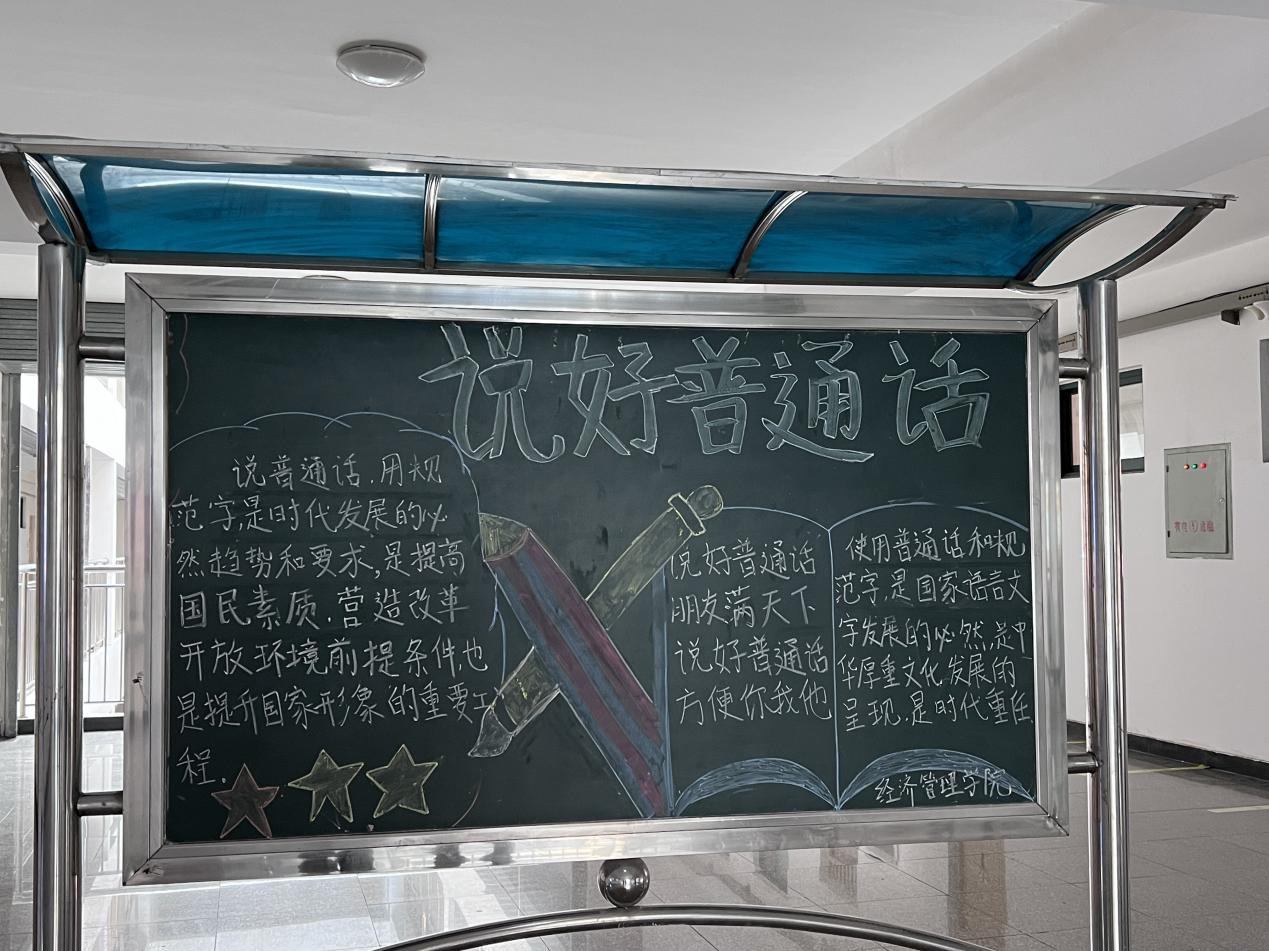 说好普通话
说普通话,用规
范字,是时代发展的必
然趋势和要求,是提高
国民素质,营造改革
开放环境前提条件,也
是提升国家形象的重要工
程.
说好普通话
朋友满天下
说好普通话
方便你我他
使用普通话和规
范字,是国家语言文
字发展的必然,是中
华厚重文化发展的
呈现,是时代重任
经济管理学院